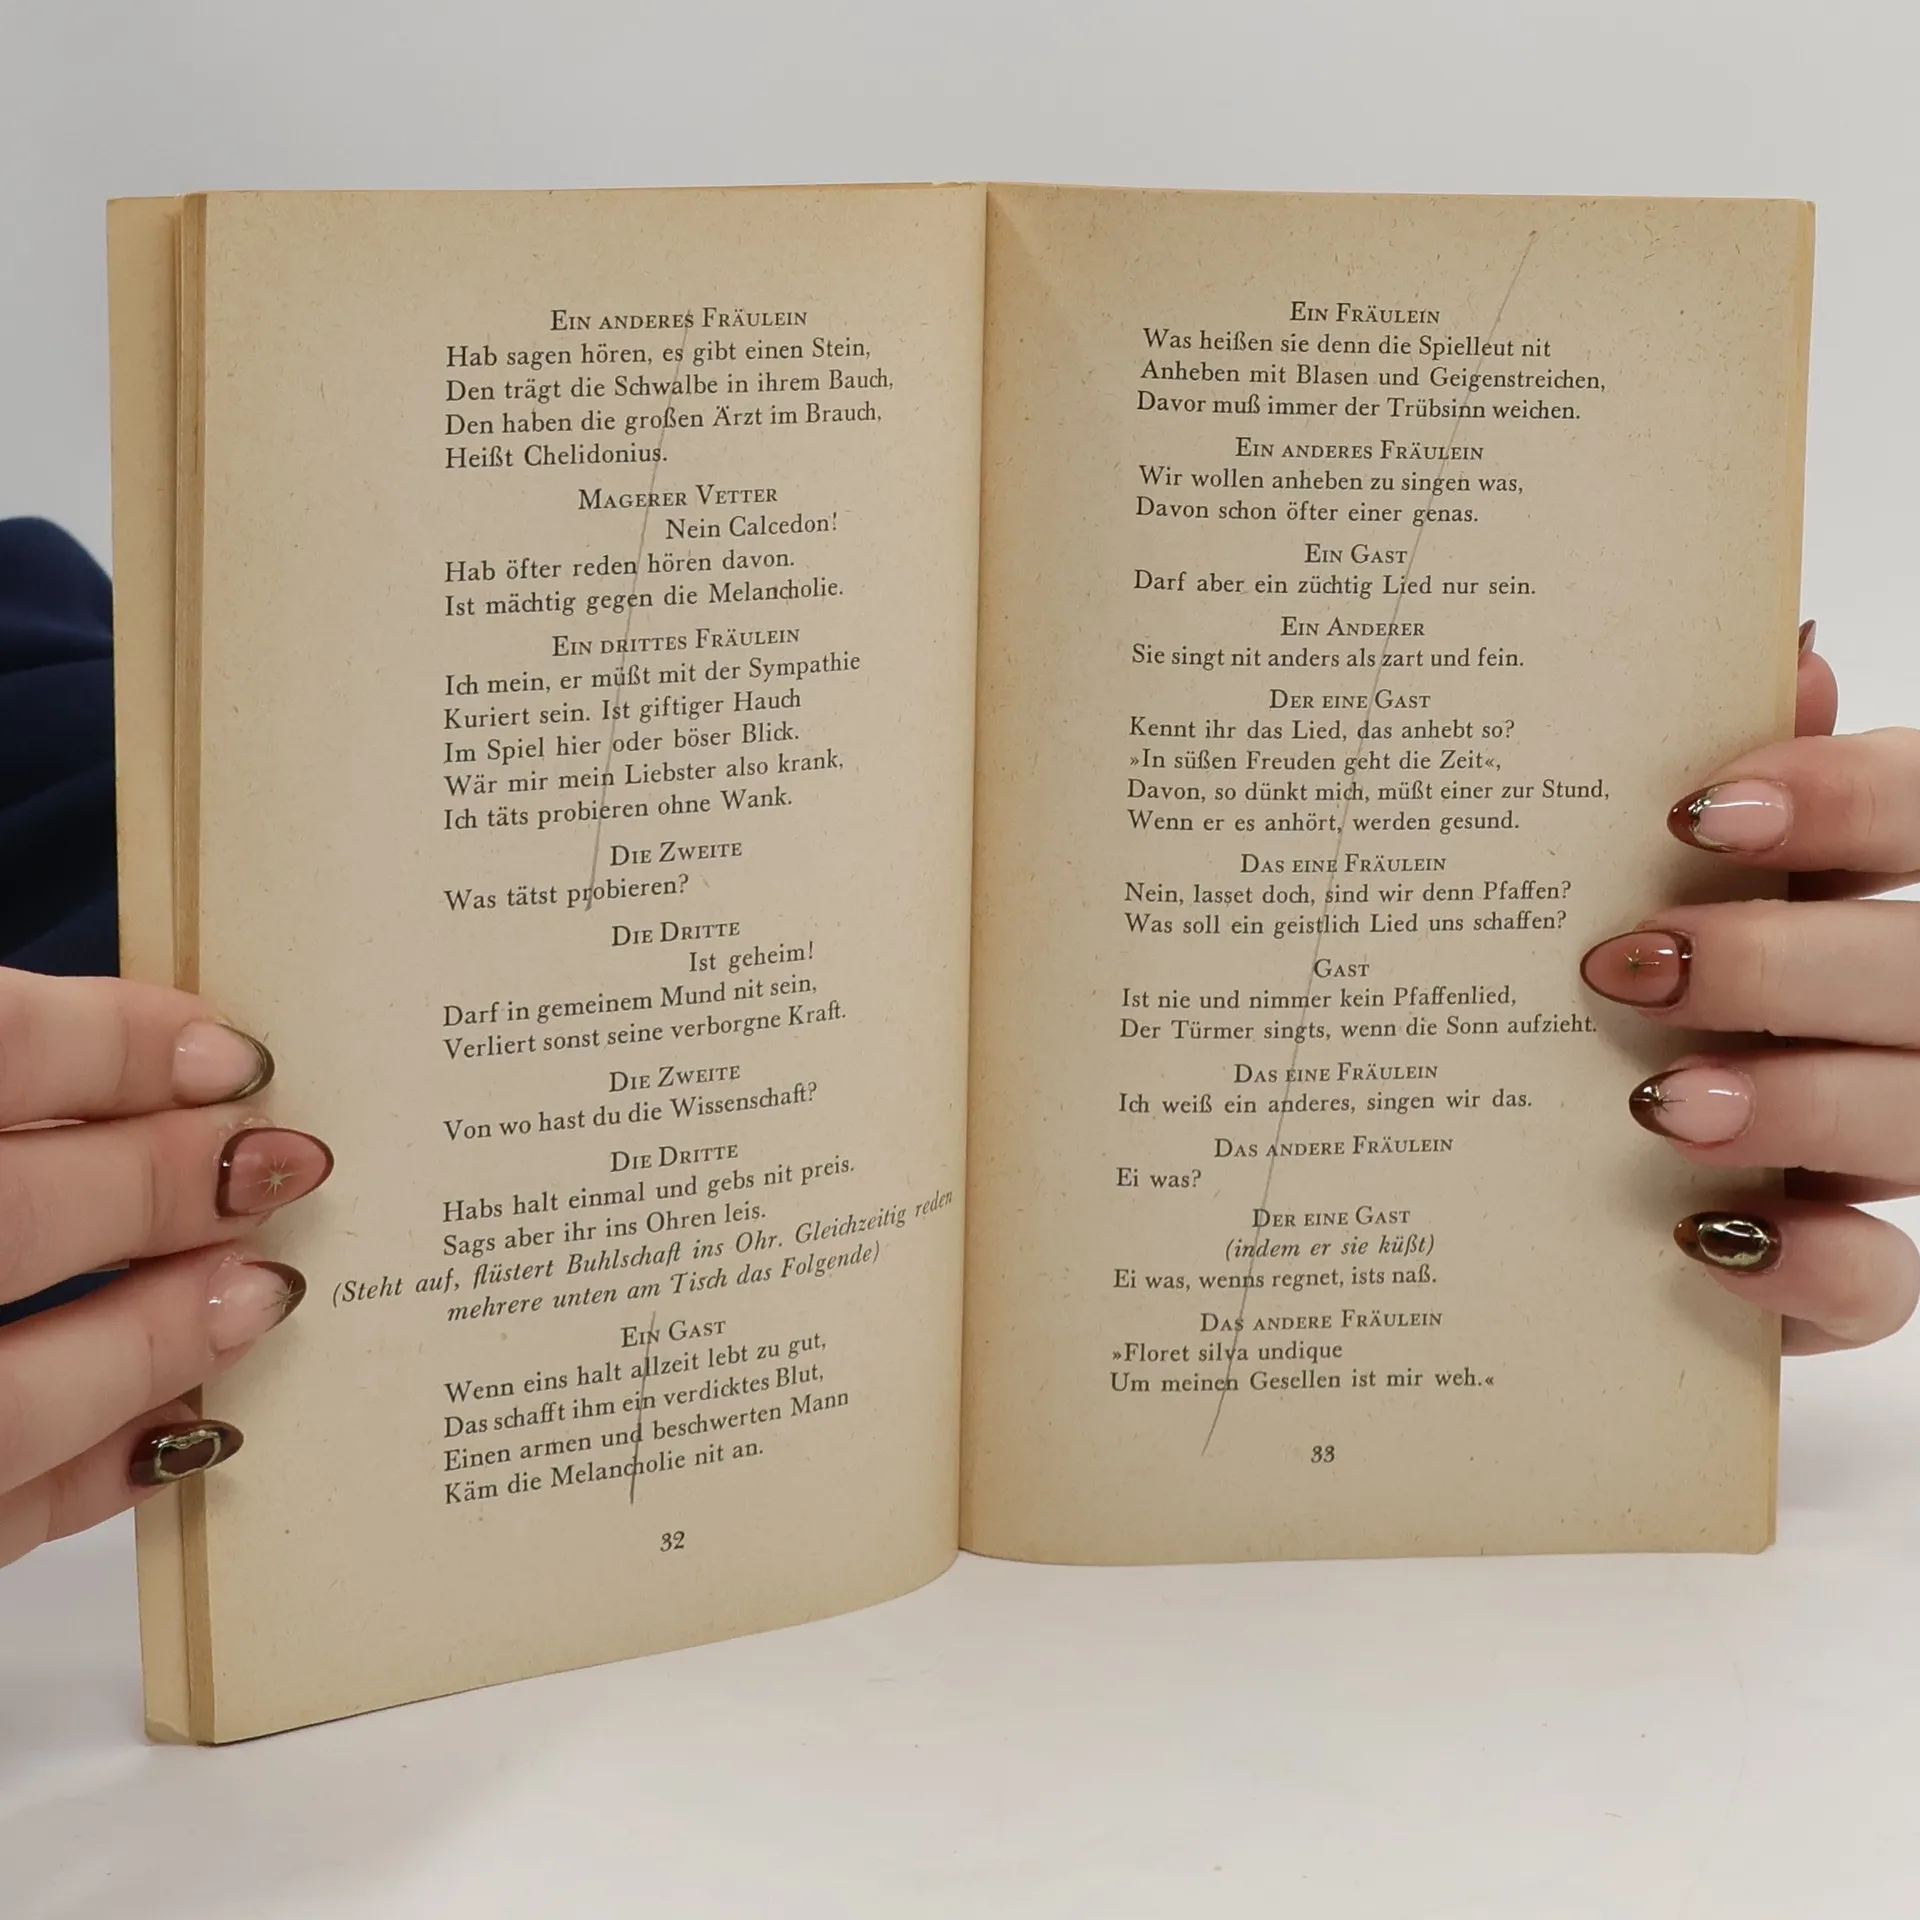 Ein anderes Fräulein
Hab sagen hören, es gibt einen Stein,
Den trägt die Schwalbe in ihrem Bauch,
Den haben die großen Ärzt im Brauch,
Heißt Chelidonius.
Magerer Vetter
Nein Calcedon!
Hab öfter reden hören davon.
Ist mächtig gegen die Melancholie.
Ein drittes Fräulein
Ich mein, er müßt mit der Sympathie
Kuriert sein. Ist giftiger Hauch
Im Spiel hier oder böser Blick.
Wär mir mein Liebster also krank,
Ich täts probieren ohne Wank.
Die Zweite
Was tätst probieren?
Die Dritte
Ist geheim!
Darf in gemeinem Mund nit sein,
Verliert sonst seine verborgne Kraft.
Die Zweite
Von wo hast du die Wissenschaft?
Die Dritte
Habs halt einmal und gebs nit preis.
Sags aber ihr ins Ohren leis.
(Steht auf, flüstert Buhlschaft ins Ohr. Gleichzeitig reden
mehrere unten am Tisch das Folgende)
Ein Gast
Wenn eins halt allzeit lebt zu gut,
Das schafft ihm ein verdicktes Blut,
Einen armen und beschwerten Mann
Käm die Melancholie nit an.
32
Ein Fräulein
Was heißen sie denn die Spielleut nit
Anheben mit Blasen und Geigenstreichen,
Davor muß immer der Trübsinn weichen.
Ein anderes Fräulein
Wir wollen anheben zu singen was,
Davon schon öfter einer genas.
Ein Gast
Darf aber ein züchtig Lied nur sein.
Ein Anderer
Sie singt nit anders als zart und fein.
Der eine Gast
Kennt ihr das Lied, das anhebt so?
»In süßen Freuden geht die Zeit«,
Davon, so dünkt mich, müßt einer zur Stund,
Wenn er es anhört, werden gesund.
Das eine Fräulein
Nein, lasset doch, sind wir denn Pfaffen?
Was soll ein geistlich Lied uns schaffen?
Gast
Ist nie und nimmer kein Pfaffenlied,
Der Türmer singts, wenn die Sonn aufzieht.
Das eine Fräulein
Ich weiß ein anderes, singen wir das.
Das andere Fräulein
Ei was?
Der eine Gast
(indem er sie küßt)
Ei was, wenns regnet, ists naß.
Das andere Fräulein
»Floret silva undique
Um meinen Gesellen ist mir weh.«
33